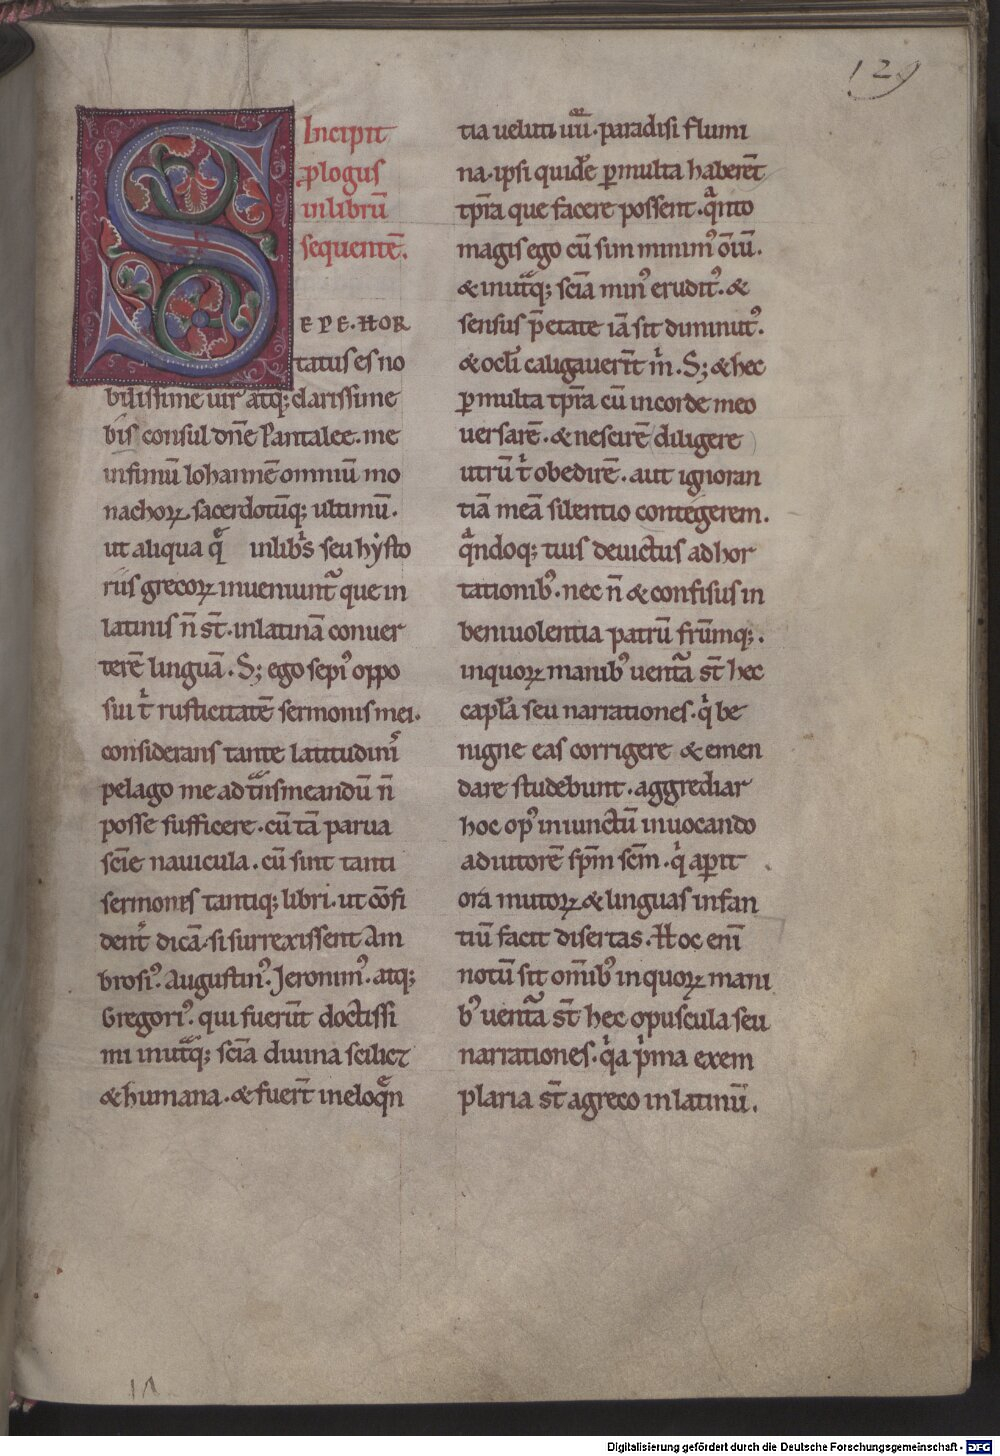 129
Incipit
ꝓlogus
in librū
sequentē.
S EPE·HOR
tatus es no
bilissime uir atq; clarissime
bis consul dn̄e Pantalee. me
infimū Iohannē omniū mo
nachoꝝ. sacerdotūq; ultimū.
ut aliqua q̄ in lib̾s seu hẏsto
riis grecoꝝ inueniunt̾ que in
latinis n̄ st̄. in latinā conuer
terē linguā. S; ego sepi᷒ oppo
sui t̾ rusticitatē sermonis mei.
considerans tante latitudinis
pelago me ad tᷓnsmeandū n̄
posse sufficere. cū tā parua
scīe nauicula. cū sint tanti
sermones tantiq; libri. ut cōfi
dent̾ dicā. si surrexissent Am
brosi᷒. Augustin᷒. Jeronim᷒. atq;
Gregori᷒. qui fuerūt doctissi
mi in utᷓq; scīa diuina scilicꝫ
& humana. & fuerīt in eloqᷓn
tia ueluti iiii. paradisi flumi
na. ipsi quidē ꝑmulta haberēt
tp̄ra que facere possent. qᷓnto
magis ego cū sim minim᷒ oīū.
& in utᷓq; scīa min᷒ erudit᷒. &
sensus p̄ etate iā sit diminut᷒.
& ocl̄i caligauerīt m̄. S; & hec
ꝑmulta tp̄ra cū in corde meo
uersarē. & nescirē diligere
utrū t̾ obedirē. aut ignoran
tiā meā silentio contegerem.
qᷓndoq; tuis deuictus adhor
tationib᷒. nec n̄ & confisus in
beniuolentia patrū frūmq;.
in quoꝝ manib᷒ uentᷓa st̄ hec
capl̄a seu narrationes. qͥ be
nigne eas corrigere & emen
dare studebunt. aggrediar
hoc op᷒ iniunctū inuocando
adiutorē sp̄m scm̄. qͥ aꝑit
ora mutoꝝ & linguas infan
tiū facit disertas. Hoc enī
notū sit om̄ib᷒ in quoꝝ mani
b᷒ uentᷓa st̄ hec opuscula seu
narrationes. qͥa pͥma exem
plaria st̄ a greco in latinū.
Digitalisierung gefördert durch die Deutsche Forschungsgemeinschaft - DFG